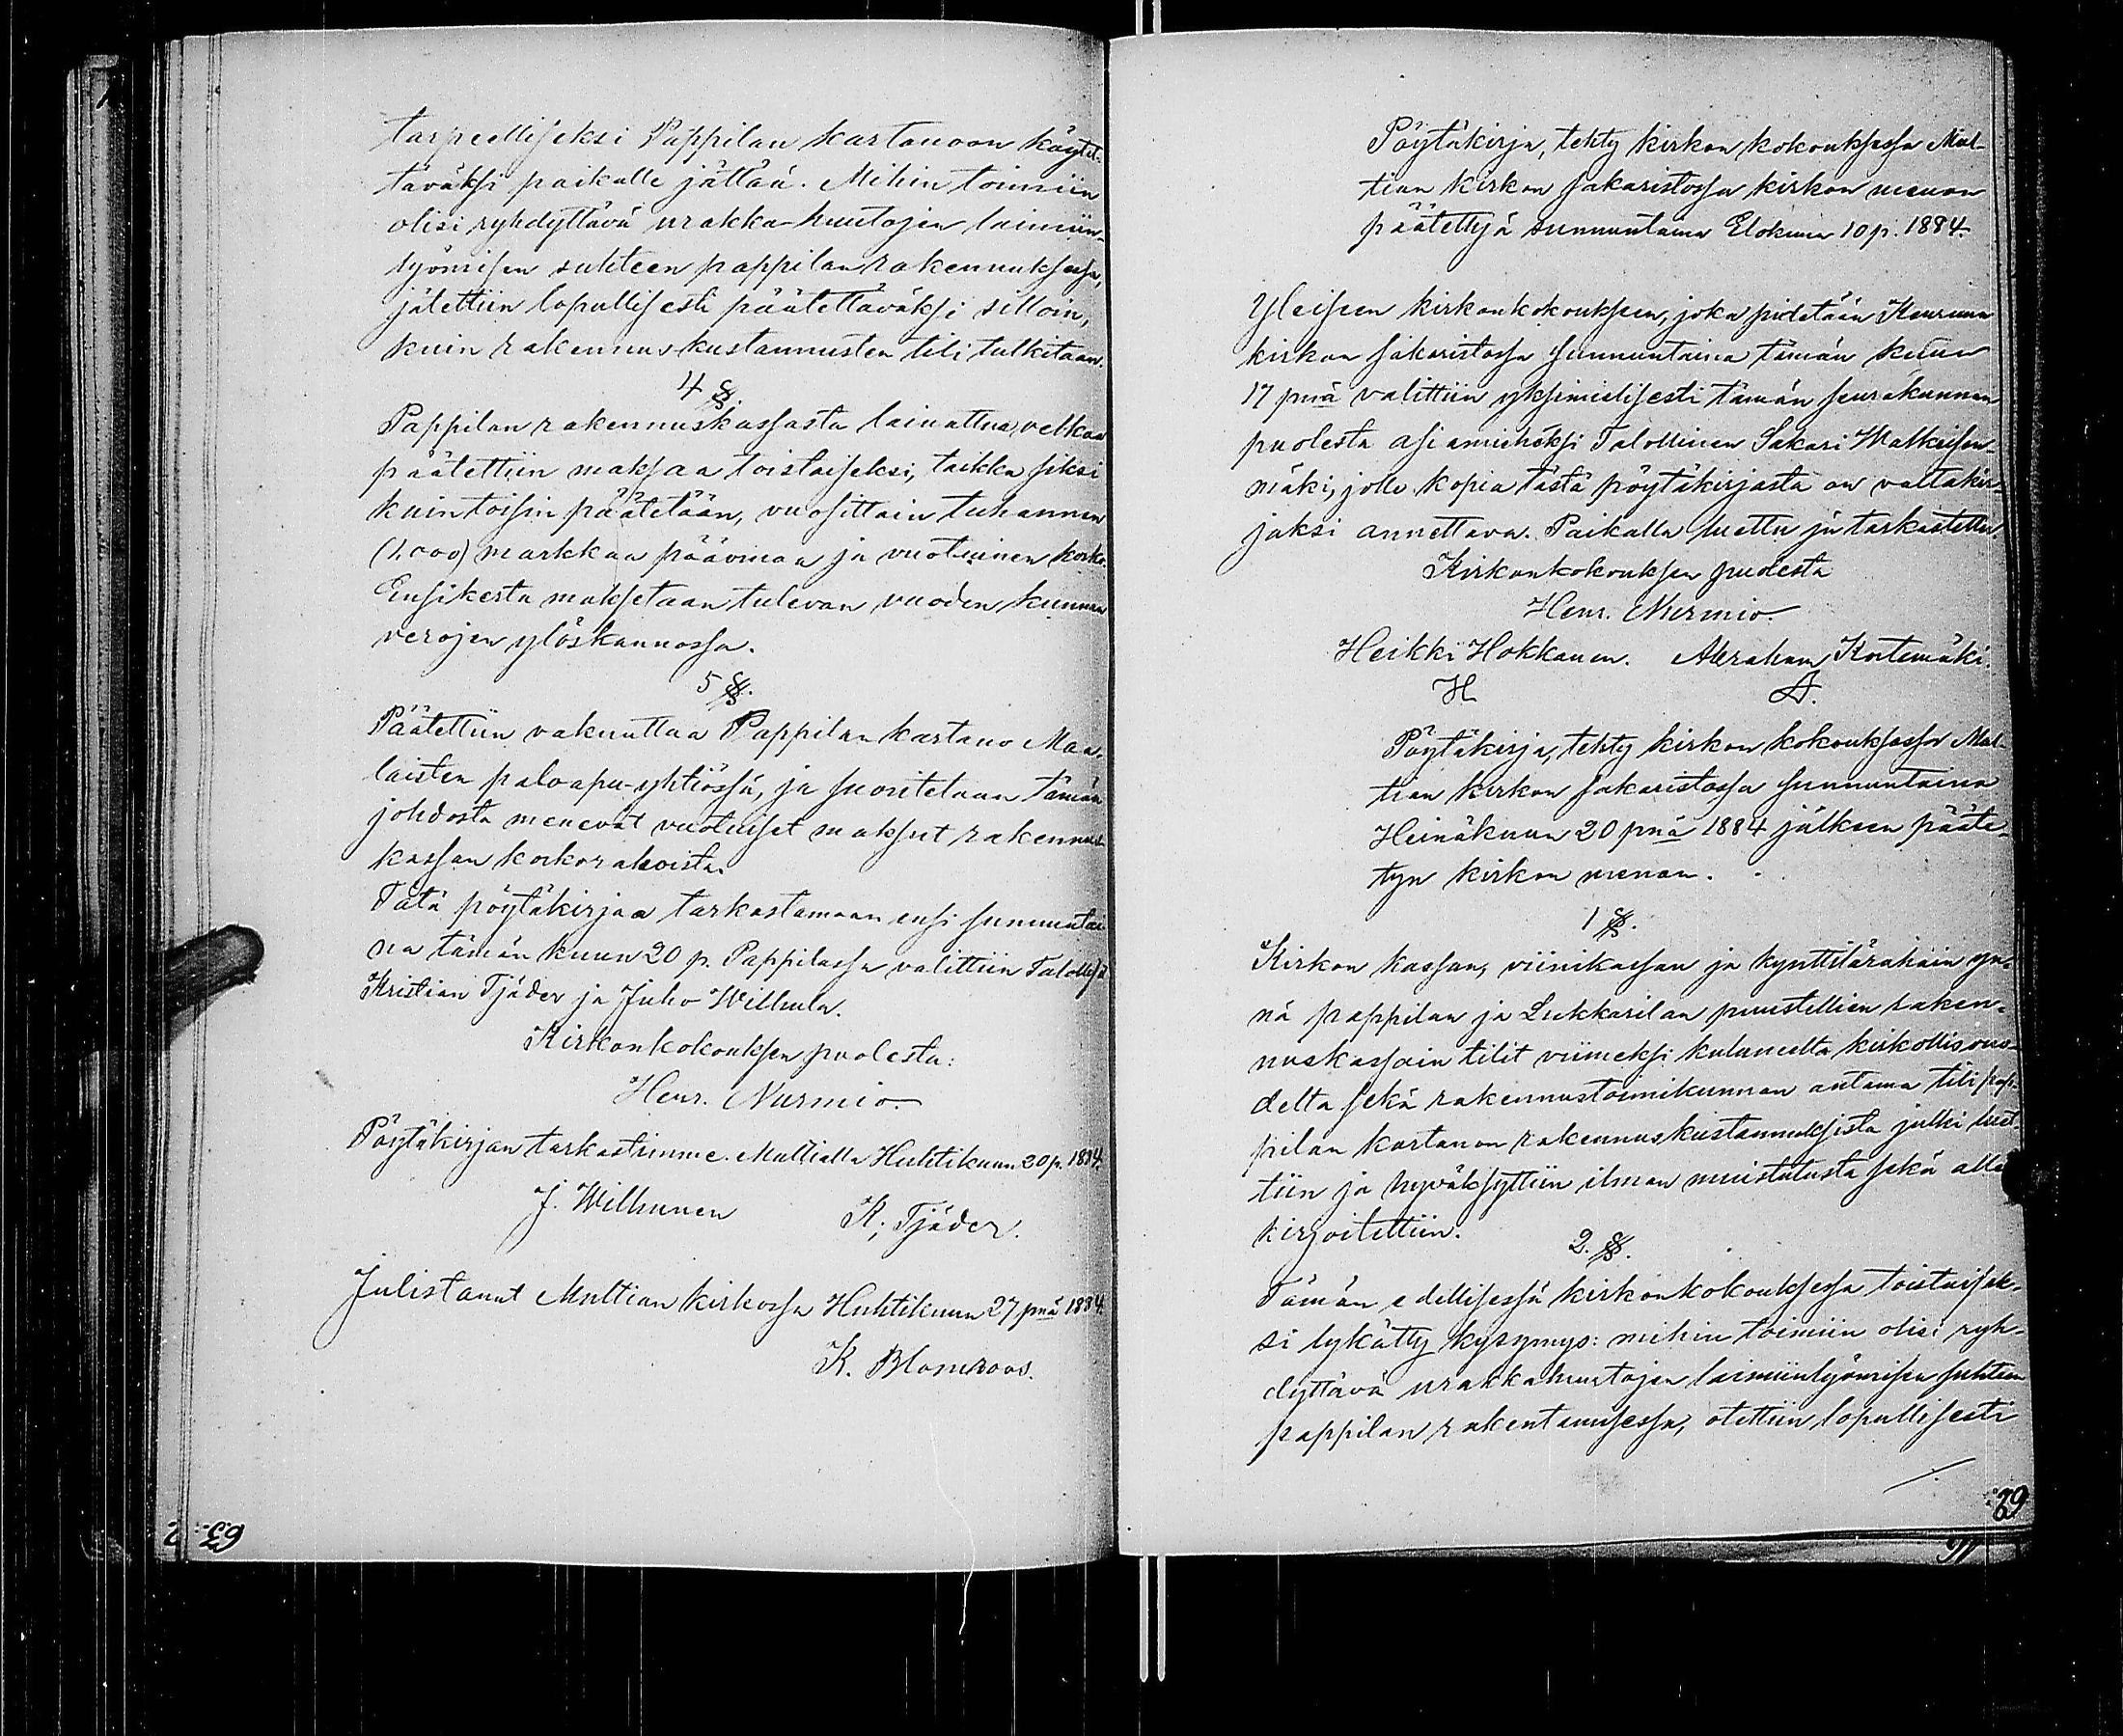 tarpeelliseksi Pappilan kartanoon käytet-
täväksi paikalle jättää. Mihin toimiin
olisi ryhdyttävä urakka-huutojen laimiin-
lyömisen suhteen pappilan rakennuksessa,
jätettiin lopullisesti päätettäväksi silloin,
kuin rakennuskustannusten tili tutkitaan.
4 §.
Pappilan rakennuskassasta lainattua velkaa
päätettiin maksaa toistaiseksi, taikka siksi
kuin toisin päätetään, vuosittain tuhannen
(1,000) markkaa päävinaa ja vuotuinen korko.
Ensikerta maksetaan tulevan vuoden kunnan
verojen ylöskannossa.
5 §.
Päätettiin vakuuttaa Pappilan kartano Maa-
laisten paloapu-yhtiössä, ja suoritetaan tämän
johdosta menevät vuotuiset maksut rakennus-
kassan korkorahoista.
Tätä pöytäkirjaa tarkastamaan ensi sunnuntai
na tämän kuun 20 p. Pappilassa valittiin Talollis
Kristian Tjäder ja Juho Wilhula.
Kirkonkokouksen puolesta:
Henr. Nurmio.
Pöytäkirjan tarkastimme. Multialla Huhtikuun 20 p. 1884.
J. Wilhunen K. Tjäder.
Julistanut Multian kirkossa Huhtikuun 27 pnä 1884.
K. Blomroos.
63
Pöytäkirja, tehty kirkon kokouksessa Mul-
tian kirkon sakaristossa kirkon menon
päätettyä sunnuntaina Elokuun 10 p. 1884.
Yleiseen kirkonkokoukseen, joka pidetään Keuruun
kirkon sakaristossa sunnuntaina tämän kuun
17 pnä valittiin yksimielisesti tämän seurakunnan
puolesta asiamieheksi Talollinen Sakari Walkeisen-
mäki, jolle kopia tästä pöytäkirjasta on valtakir-
jaksi annettava. Paikalla luettu ja tarkastettu
Kirkonkokouksen puolesta
Henr. Nurmio.
Heikki Hokkanen. Abraham Kortemäki.
H A.
Pöytäkirja, tehty kirkon kokouksessa Mul-
tian kirkon sakaristossa sunnuntaina
Heinäkuun 20 pnä 1884 jälkeen pääte-
tyn kirkon menon.
1 §.
Kirkon kassan, viinikassan ja kynttilärahain yn-
nä pappilan ja Lukkarilan puustellien raken-
nuskassain tilit viimeksi kuluneelta kirkollisvuo-
delta sekä rakennustoimikunnan antama tili pap-
pilan kartanon rakennuskustannuksista julki luet-
tiin ja hyväksyttiin ilman muistutusta sekä alle
kirjoitettiin.
2. §.
Tämän edellisessä kirkonkokouksessa toistaisek-
si lykätty kysymys: mihin toimiin olisi ryh-
dyttävä urakkahuutojen laimiinlyömisen suhteen
pappilan rakentamisessa, otettiin lopullisesti